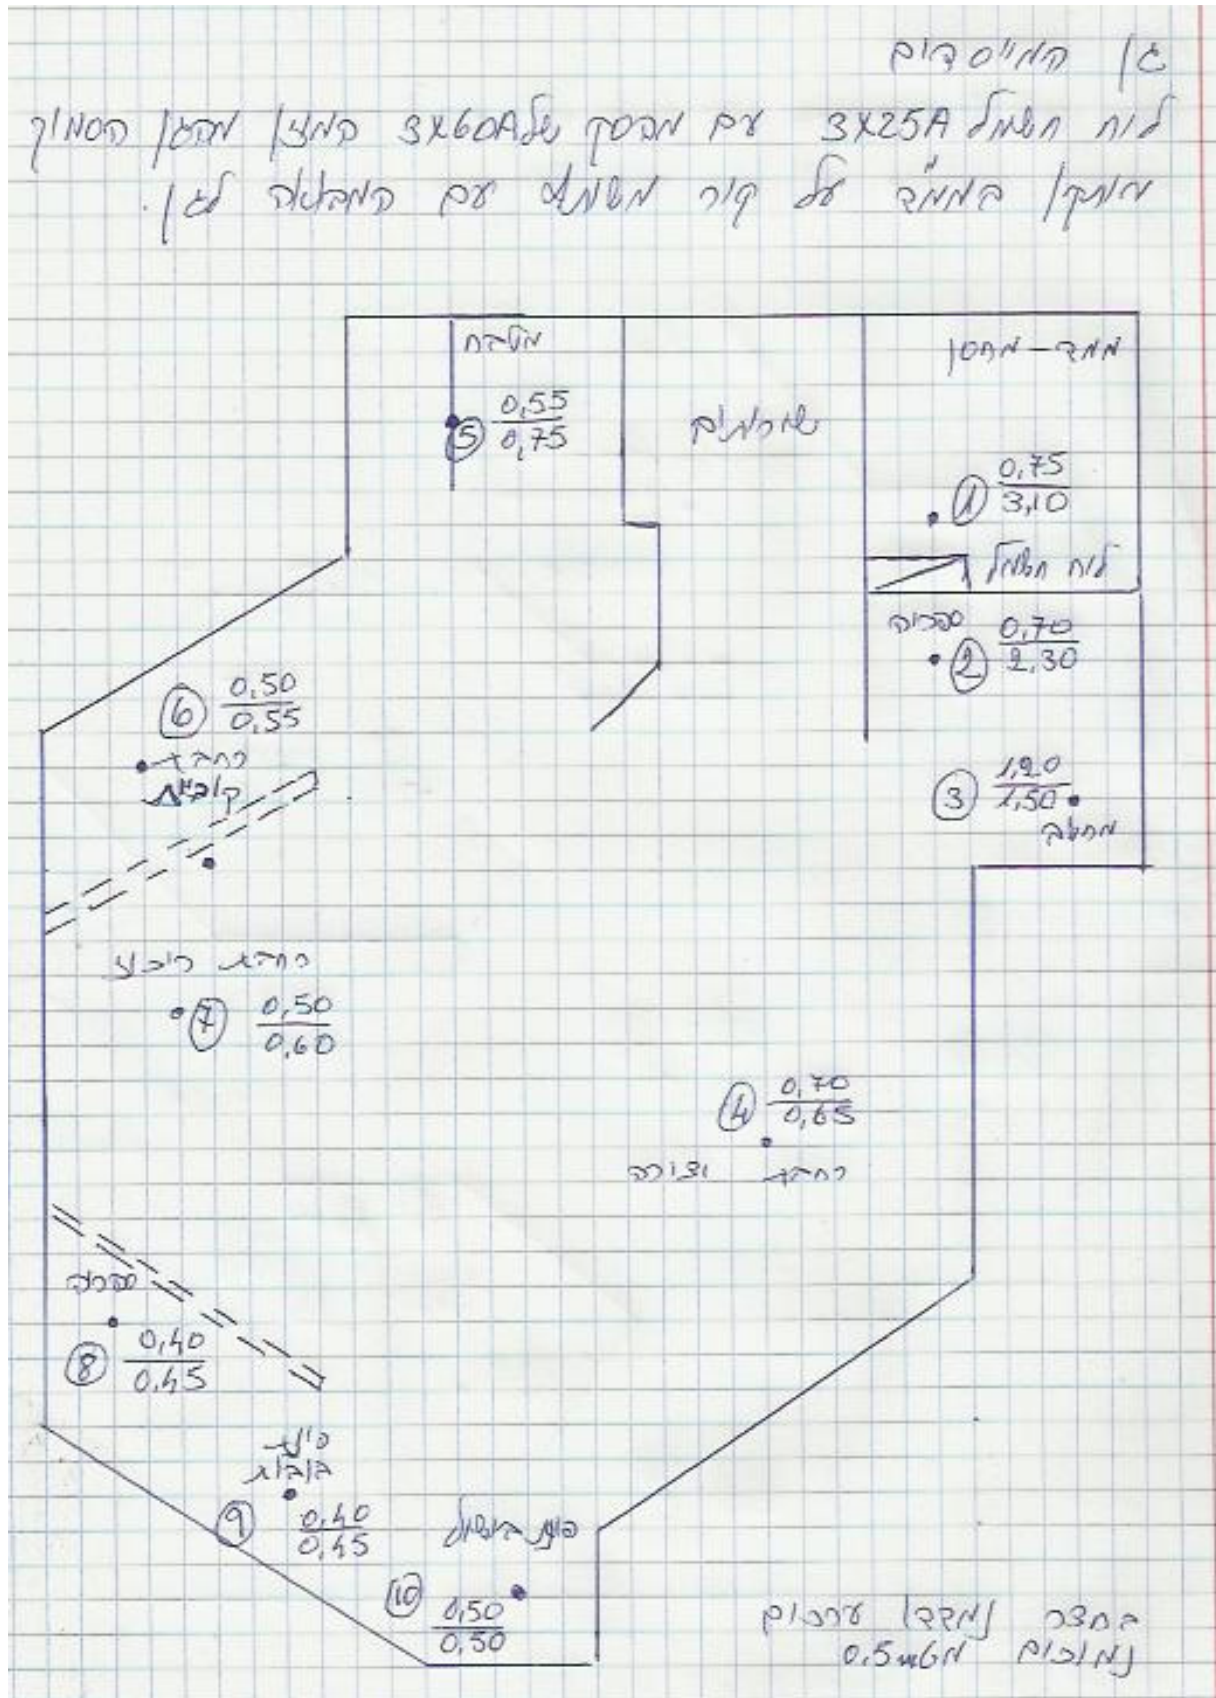 גן המייסדים
לוח חשמל 3X25A עם מפסק של 3X60A המזין מהגן הסמוך
מותקן בממ"ד על קיר משותף עם המבואה לגן.
מטבח
ממד-מחסן
5 0,55/0,75
שירותים
1 0,75/3,10
לוח חשמל
ספריה
2 0,70/2,30
6 0,50/0,55
רחבת
קוביות
3 1,20/1,50
מחשב
רחבת ריכוז
7 0,50/0,60
4 0,70/0,65
רחבת יצירה
ספריה
8 0,40/0,45
פינת
בובות
9 0,40/0,45
פינת בישול
10 0,50/0,50
בחצר נמדדו ערכים
נמוכים מ 0.5mG